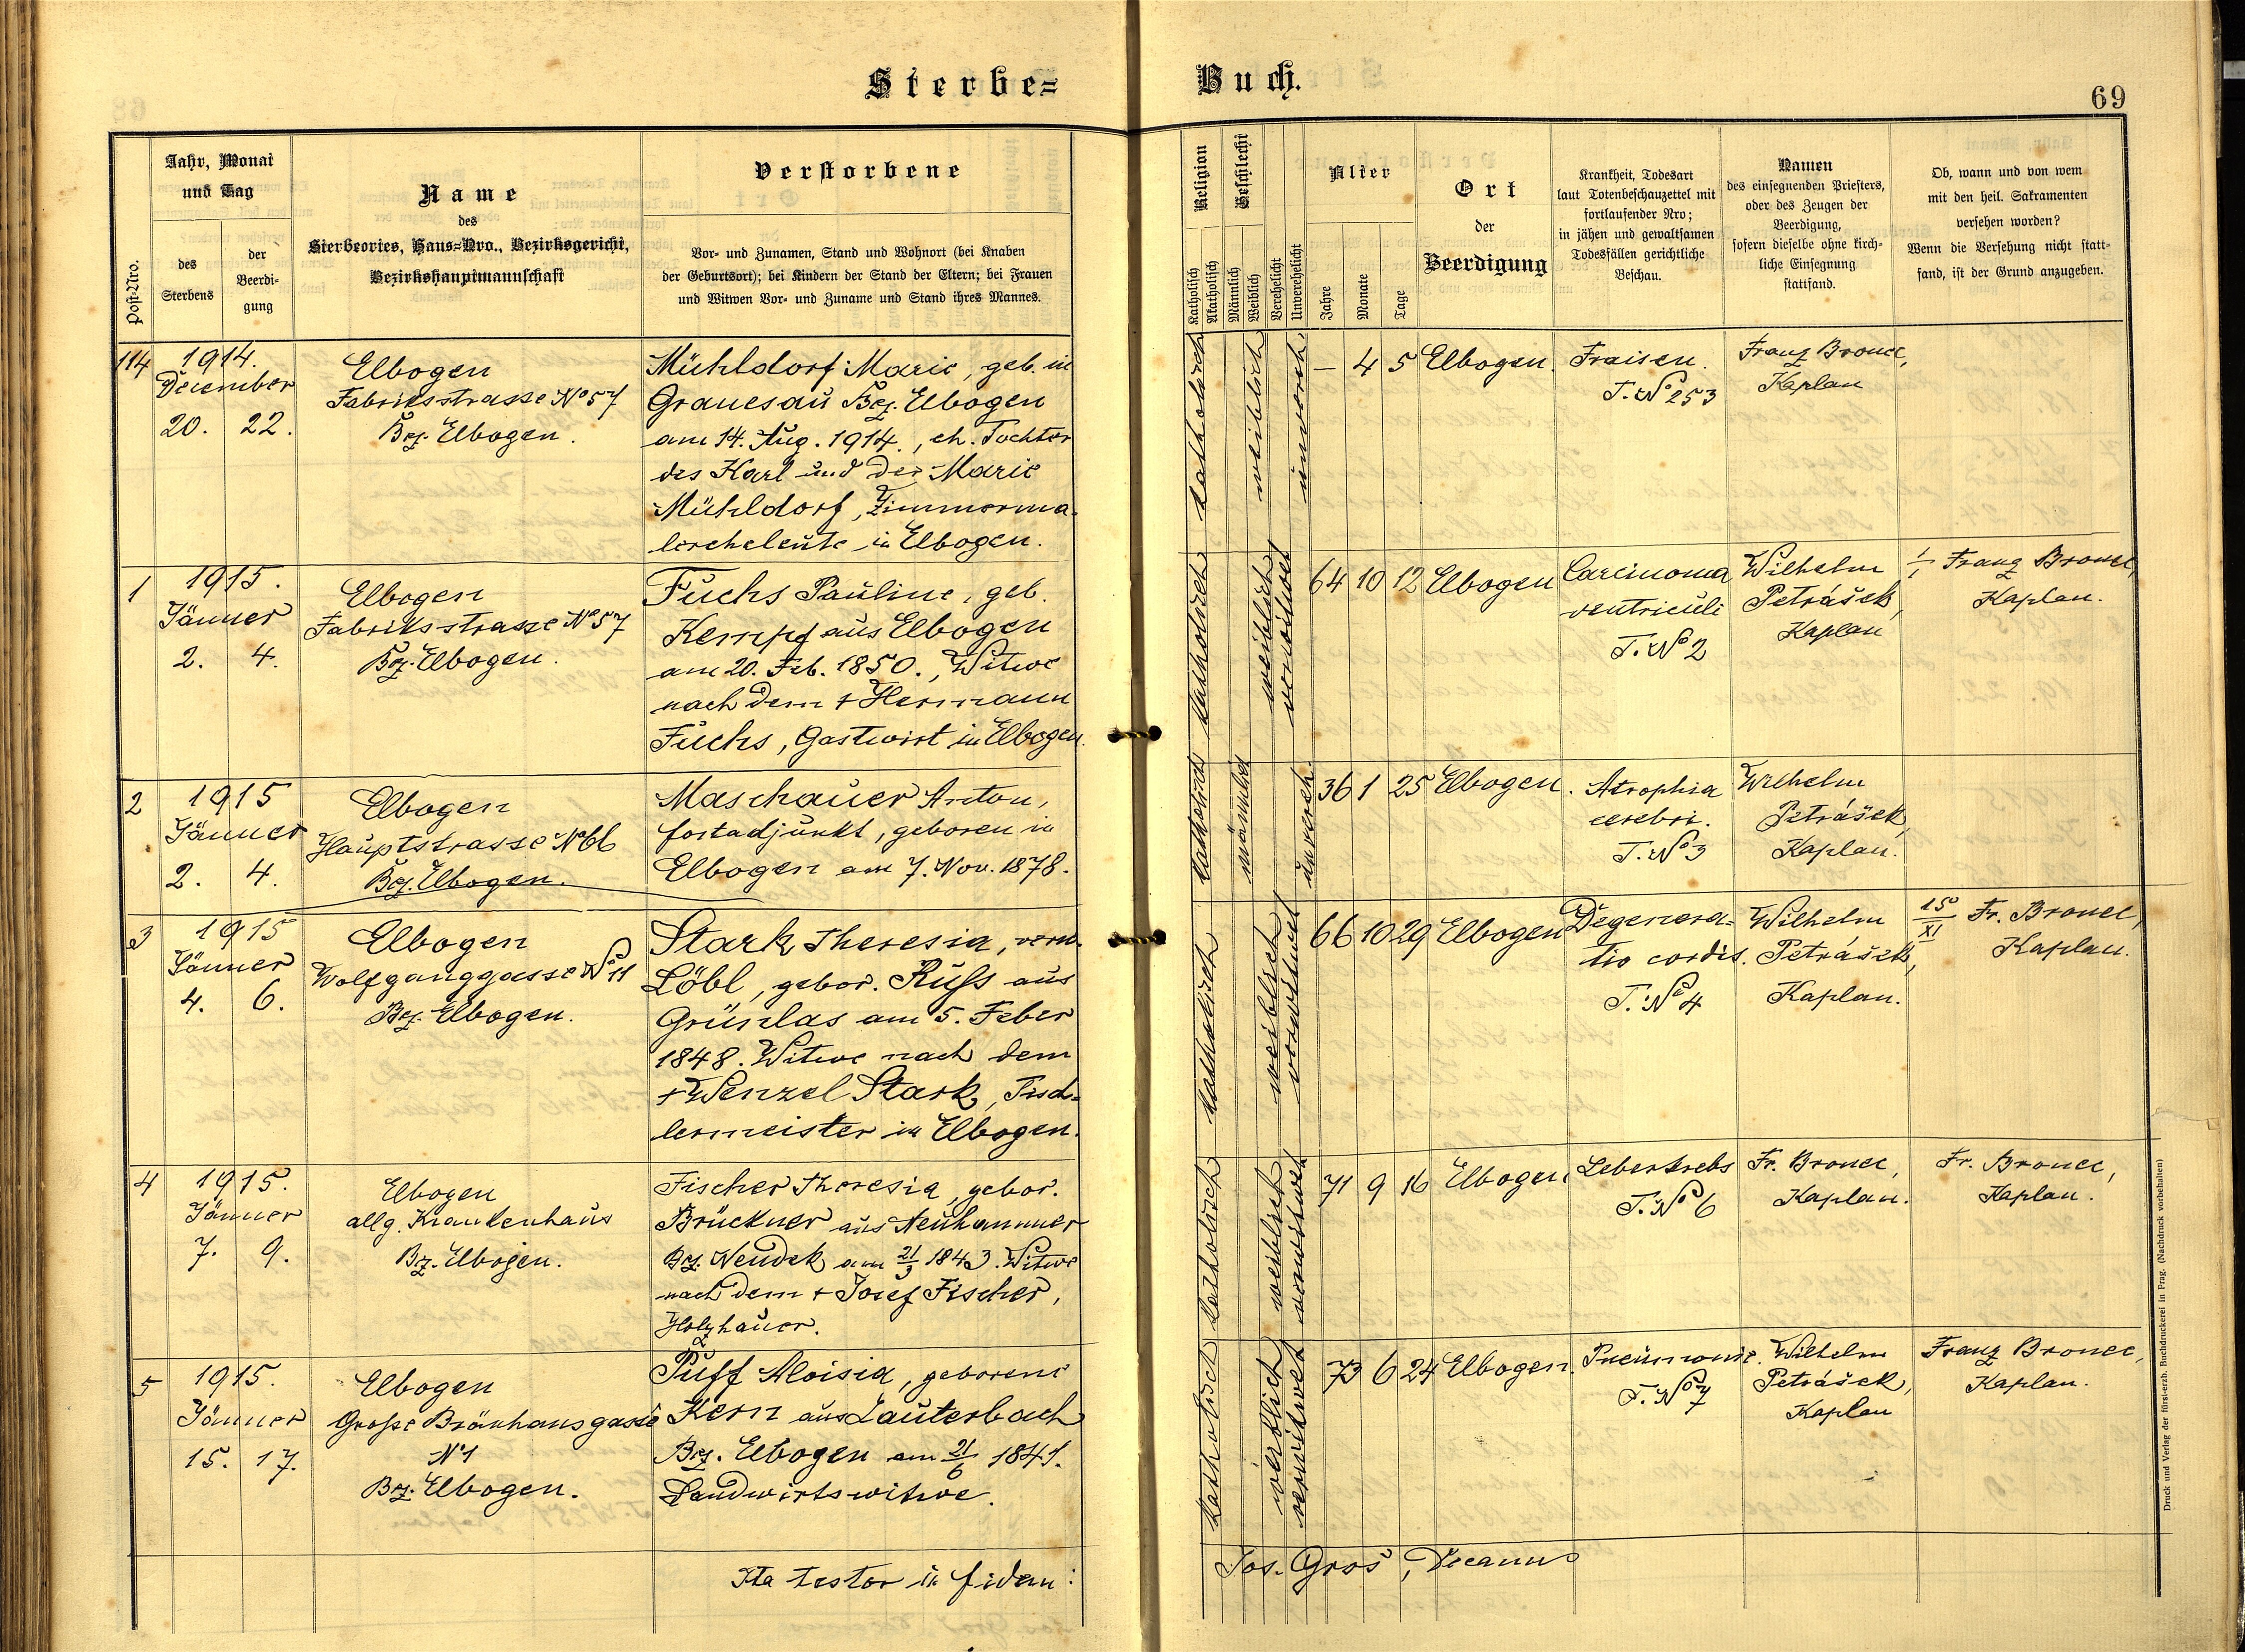 Sterbe=
Buch.
69
Post-Nro.
Jahr, Monat
und Tag
des
Sterbens
der
Beerdi-
gung
Name
des
Sterbeortes, Haus=Nro., Bezirksgericht,
Bezirkshauptmannschaft
Verstorbene
Vor- und Zunamen, Stand und Wohnort (bei Knaben
der Geburtsort); bei Kindern der Stand der Eltern; bei Frauen
und Witwen Vor- und Zuname und Stand ihres Mannes.
Religion
Katholisch
Akatholisch
Geschlecht
Männlich
Weiblich
Verehelicht
Unverehelicht
Alter
Jahre
Monate
Tage
Ort
der
Beerdigung
Krankheit, Todesart
laut Totenbeschauzettel mit
fortlaufender Nro;
in jähen und gewaltsamen
Todesfällen gerichtliche
Beschau.
Namen
des einsegnenden Priesters,
oder des Zeugen der
Beerdigung,
sofern dieselbe ohne kirch-
liche Einsegnung
stattfand.
Ob, wann und von wem
mit den heil. Sakramenten
versehen worden?
Wenn die Versehung nicht statt-
fand, ist der Grund anzugeben.
114
1914.
December
20. 22.
Elbogen
Fabriksstrasse No 57
Bez. Elbogen.
Mühldorf Marie, geb. in
Granesau Bez. Elbogen
am 14. Aug. 1914., eh. Tochter
des Karl und der Marie
Mühldorf, Zimmerma-
lereheleute in Elbogen.
katholisch
weiblich
unvereh
– 4 5
Elbogen.
Fraisen.
T. No 253
Franz Bronec,
Kaplan
1
1915.
Jänner
2. 4.
Elbogen
Fabriksstrasse No 57
Bez. Elbogen.
Fuchs Pauline, geb.
Kempf aus Elbogen
am 20. Feb. 1850., Witwe
nach dem + Hermann
Fuchs, Gastwirt in Elbogen.
katholisch
weiblich
verwitwet
64 10 12
Elbogen
Carcinoma
ventriculi
T. No 2
Wilhelm
Petrášek,
Kaplan
1/1 Franz Bronec,
Kaplan.
2
1915
Jänner
2. 4.
Elbogen
Hauptstrasse No 66
Bez. Elbogen.
Maschauer Anton,
forstadjunkt, geboren in
Elbogen am 7. Nov. 1878.
katholisch
männlich
unvereh.
36 1 25
Elbogen.
Atrophia
cerebri.
T. No 3
Wilhelm
Petrášek,
Kaplan.
3
1915
Jänner
4. 6.
Elbogen
Wolfganggasse No 11
Bez. Elbogen.
Stark Theresia, verw.
Löbl, gebor. Ruß aus
Grünlas am 5. Feber
1848. Witwe nach dem
+ Wenzel Stark, Tisch-
lermeister in Elbogen.
katholisch
weiblich
verwitwet
66 10 29
Elbogen
Degenera-
tio cordis.
T. No 4
Wilhelm
Petrášek,
Kaplan.
15/XI Fr. Bronec,
Kaplan.
4
1915.
Jänner
7. 9.
Elbogen
allg. Krankenhaus
Bz. Elbogen.
Fischer Theresia, gebor.
Brückner aus Neuhammer
Bez. Neudek am 21/3 1843. Witwe
nach dem + Josef Fischer,
Holzhauer.
katholisch
weiblich
verwitwet
71 9 16
Elbogen
Leberkrebs
T. No 6
Fr. Bronec,
Kaplan.
Fr. Bronec,
Kaplan.
5
1915.
Jänner
15. 17.
Elbogen
Große Bräuhausgasse
No 1
Bez. Elbogen.
Puff Aloisia, geborene
Kern aus Lauterbach
Bez. Elbogen am 21/6 1841.
Landwirtswitwe.
katholisch
weiblich
verwitwet
73 6 24
Elbogen.
Pneumonie.
T. No 7
Wilhelm
Petrášek,
Kaplan
Franz Bronec,
Kaplan.
Ita testor in fidem:
Jos. Groš, Decanus
Druck und Verlag der fürst-erzb. Buchdruckerei in Prag. (Nachdruck vorbehalten)